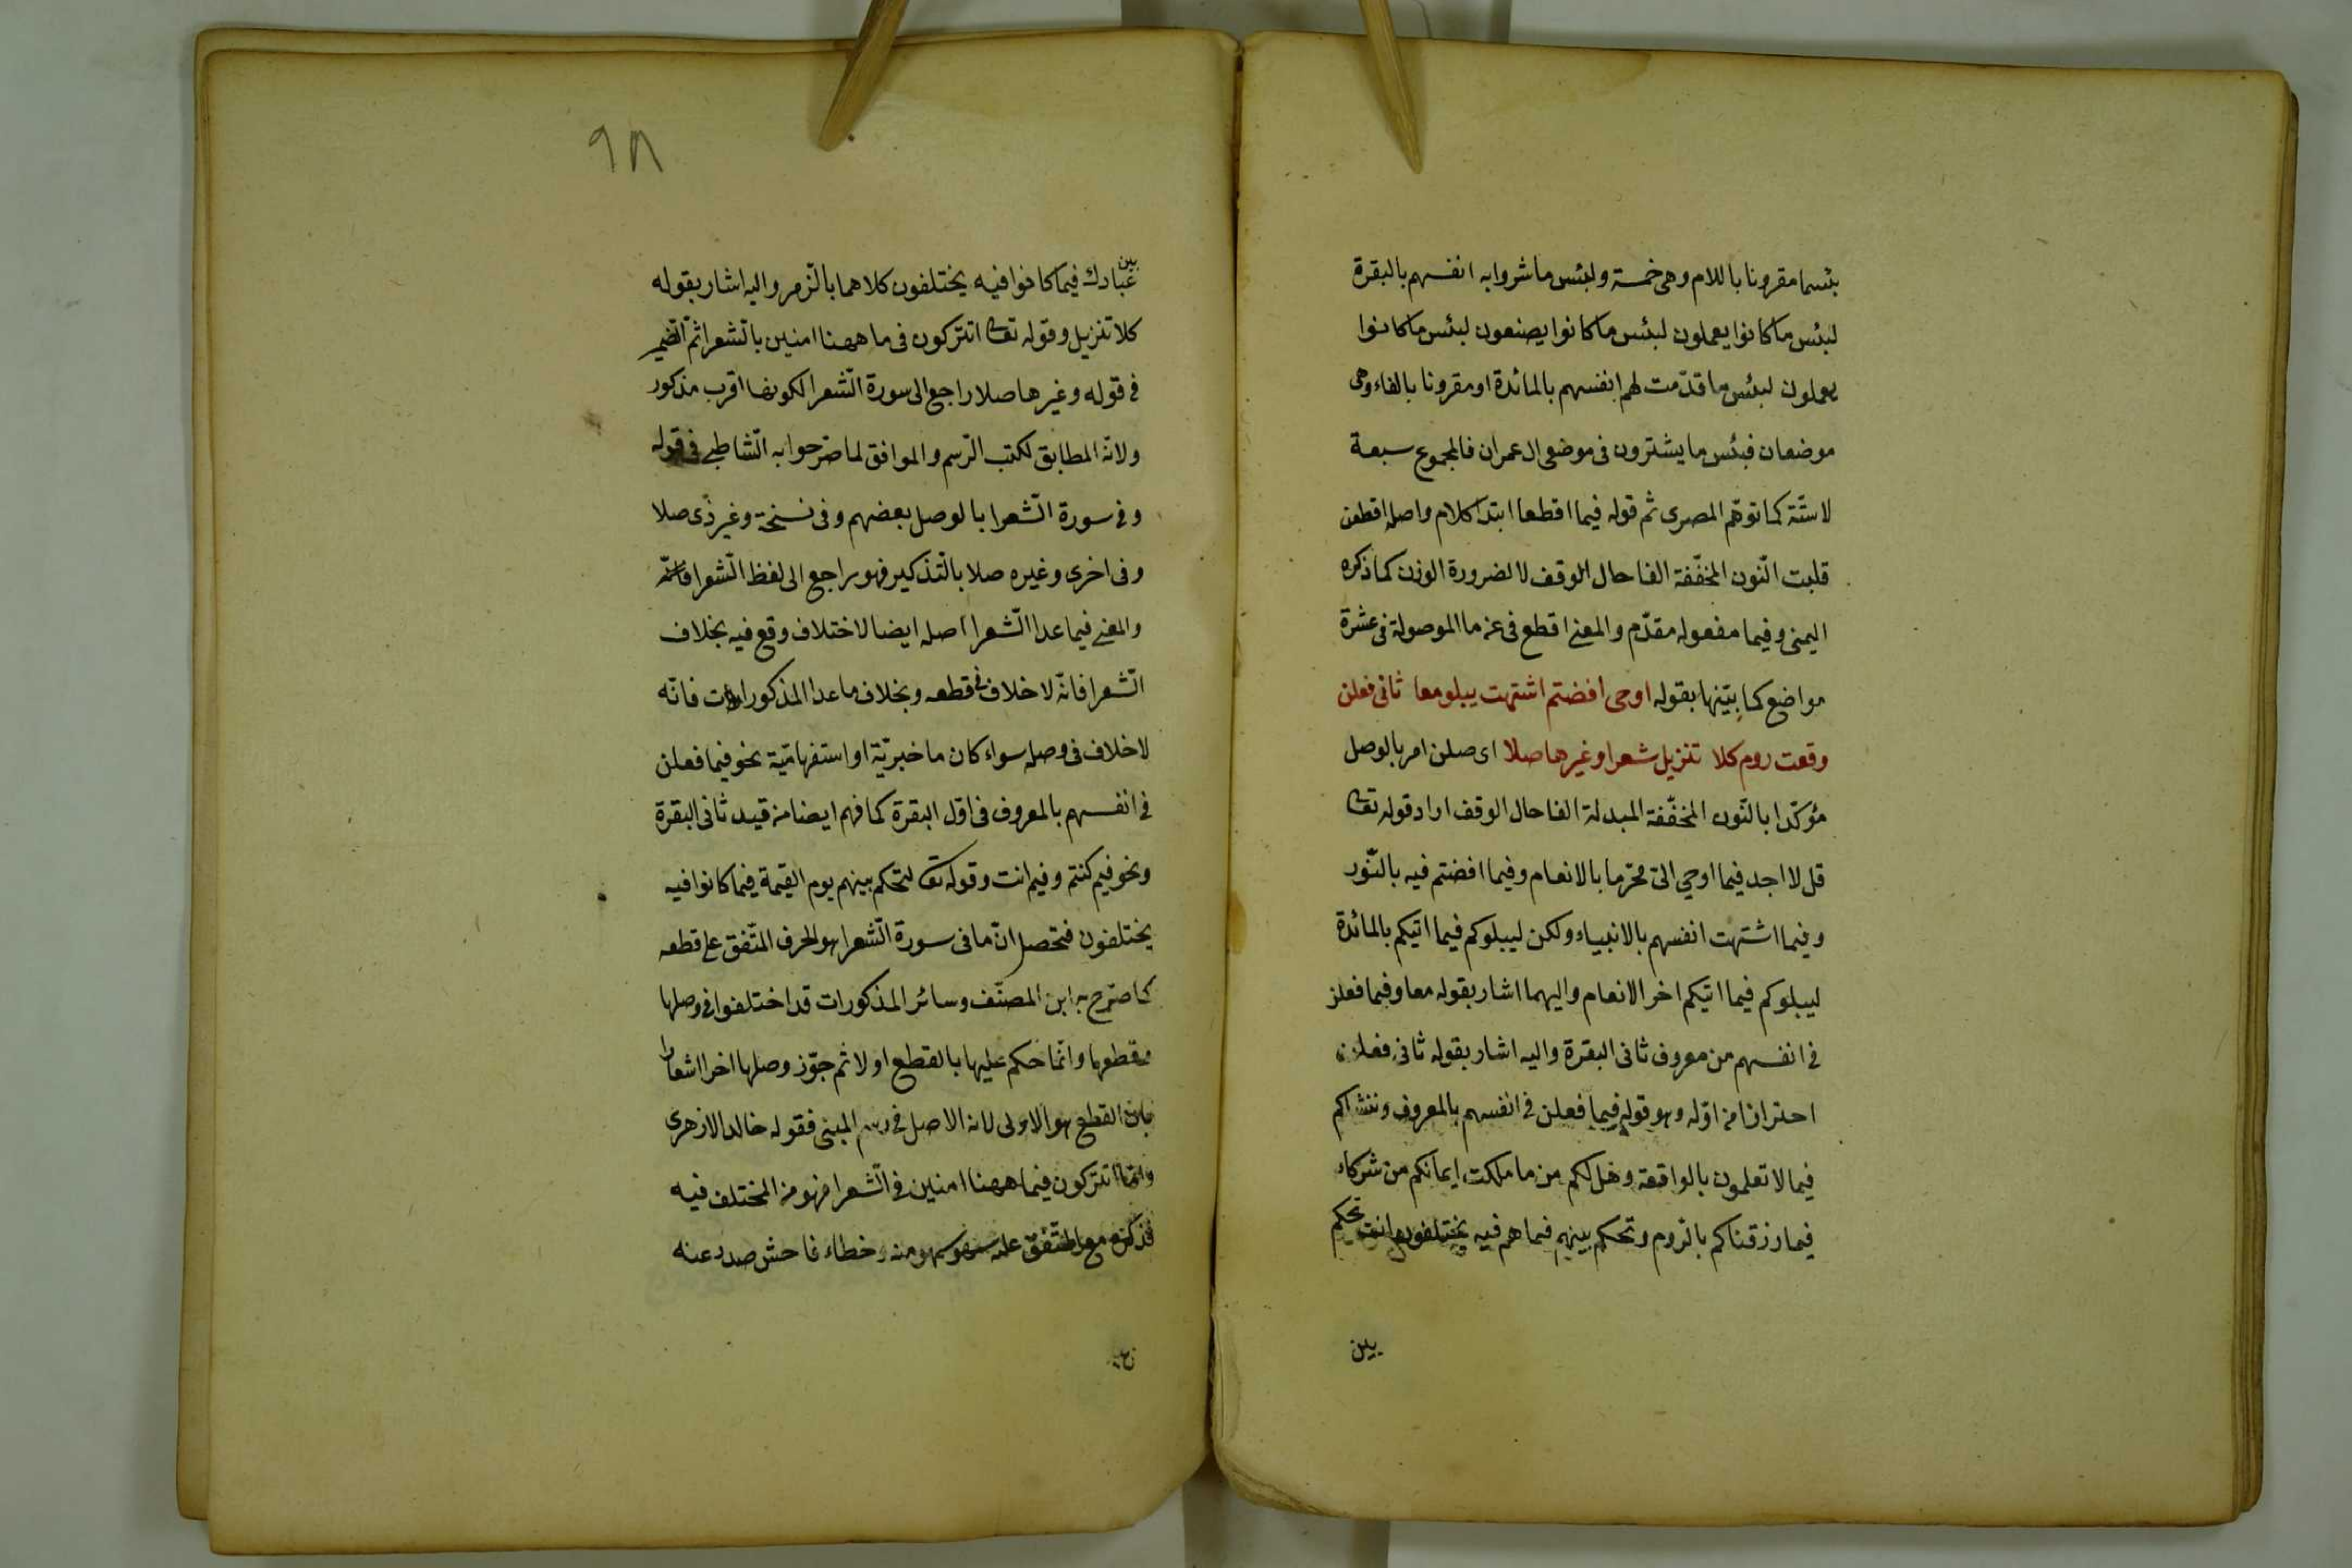 بئسما مقرونا باللام وهى خمسة ولبئس ما شروا به انفسهم بالبقرة
لبئس ما كانوا يعملون لبئس ما كانوا يصنعون لبئس ما كانوا
يعملون لبئس ما قدّمت لهم انفسهم بالمائدة او مقرونا بالفاء وهى
موضعان فبئس ما يشترون فى موضعى ال عمران فالمجموع سبعة
لا ستّة كما توهّم المصرى ثم قوله فيما اقطعا ابتدا كلام واصله اقطعن
قلبت النّون المخفّفة الفا حال الوقف لا لضرورة الوزن كما ذكره
اليمنى وفيما مفعوله مقدّم والمعنى اقطع فى عن ما الموصولة فى عشرة
مواضع كما بيّنها بقوله اوحى افضتم اشتهت يبلو معا ثانى فعلن
وقعت روم كلا تنزيل شعرا وغيرها صلا اى صلن امر بالوصل
مؤكّدا بالنّون المخفّفة المبدلة الفا حال الوقف اراد قوله تعا
قل لا اجد فيما اوحي الىّ محرّما بالانعام وفيما افضتم فيه بالنّور
وفيما اشتهت انفسهم بالانبياء ولكن ليبلوكم فيما اتيكم بالمائدة
ليبلوكم فيما اتيكم اخر الانعام واليهما اشار بقوله معا وفيما فعلن
فى انفسهم من معروف ثانى البقرة واليه اشار بقوله ثانى فعلن
احترازا من اوّله وهو قوله فيما فعلن فى انفسهم بالمعروف وننشاكم
فيما لا تعلمون بالواقعة وهل لكم من ما ملكت ايمانكم من شركاء
فيما رزقناكم بالرّوم وتحكم بينهم فيما هم فيه يختلفون انت تحكم
بين
٩٨
بين
عبادك فيما كانوا فيه يختلفون كلاهما بالزّمر واليه اشار بقوله
كلا تنزيل وقوله تعا اتتركون فى ما ههنا امنين بالشعرا ثمّ الضّمير
فى قوله وغيرها صلا راجع الى سورة الشّعرا لكونها اقرب مذكور
ولانه المطابق لكتب الرّسم والموافق لما صرّحوا به الشّاطبى فى قوله
وفى سورة الشّعرا بالوصل بعضهم وفى نسخة وغير ذى صلا
وفى اخرى وغيره صلا بالتّذكير فهو راجع الى لفظ الشّعرا
والمعنى فيما عدا الشّعرا اصله ايضا لاختلاف وقع فيه بخلاف
الشّعرا فانّه لا خلاف فى قطعه وبخلاف ما عدا المذكورات فانّه
لا خلاف فى وصله سواء كان ما خبريّة او استفهاميّة نحو فيما فعلن
فى انفسهم بالمعروف فى اوّل البقرة كما فهم ايضا من قيد ثانى البقرة
ونحو فيم كنتم وفيم انت وقوله تعا ليحكم بينهم يوم القيمة فيما كانوا فيه
يختلفون فتحصل انّ ما فى سورة الشّعرا هو الحرف المتّفق على قطعه
كما صرّح به ابن المصنّف وسائر المذكورات قد اختلفوا فى وصلها
وقطعها وانّما حكم عليها بالقطع اولا ثم جوّز وصلها اخرا اشعارا
بان القطع هو الاولى لانه الاصل فى رسم المبنى فقوله خالد الازهرى
وانّما اتتركون فيما ههنا امنين فى الشّعرا فهو من المختلف فيه
فذكره مع المتّفق عليه سهو منه وخطاء فاحش صدر عنه